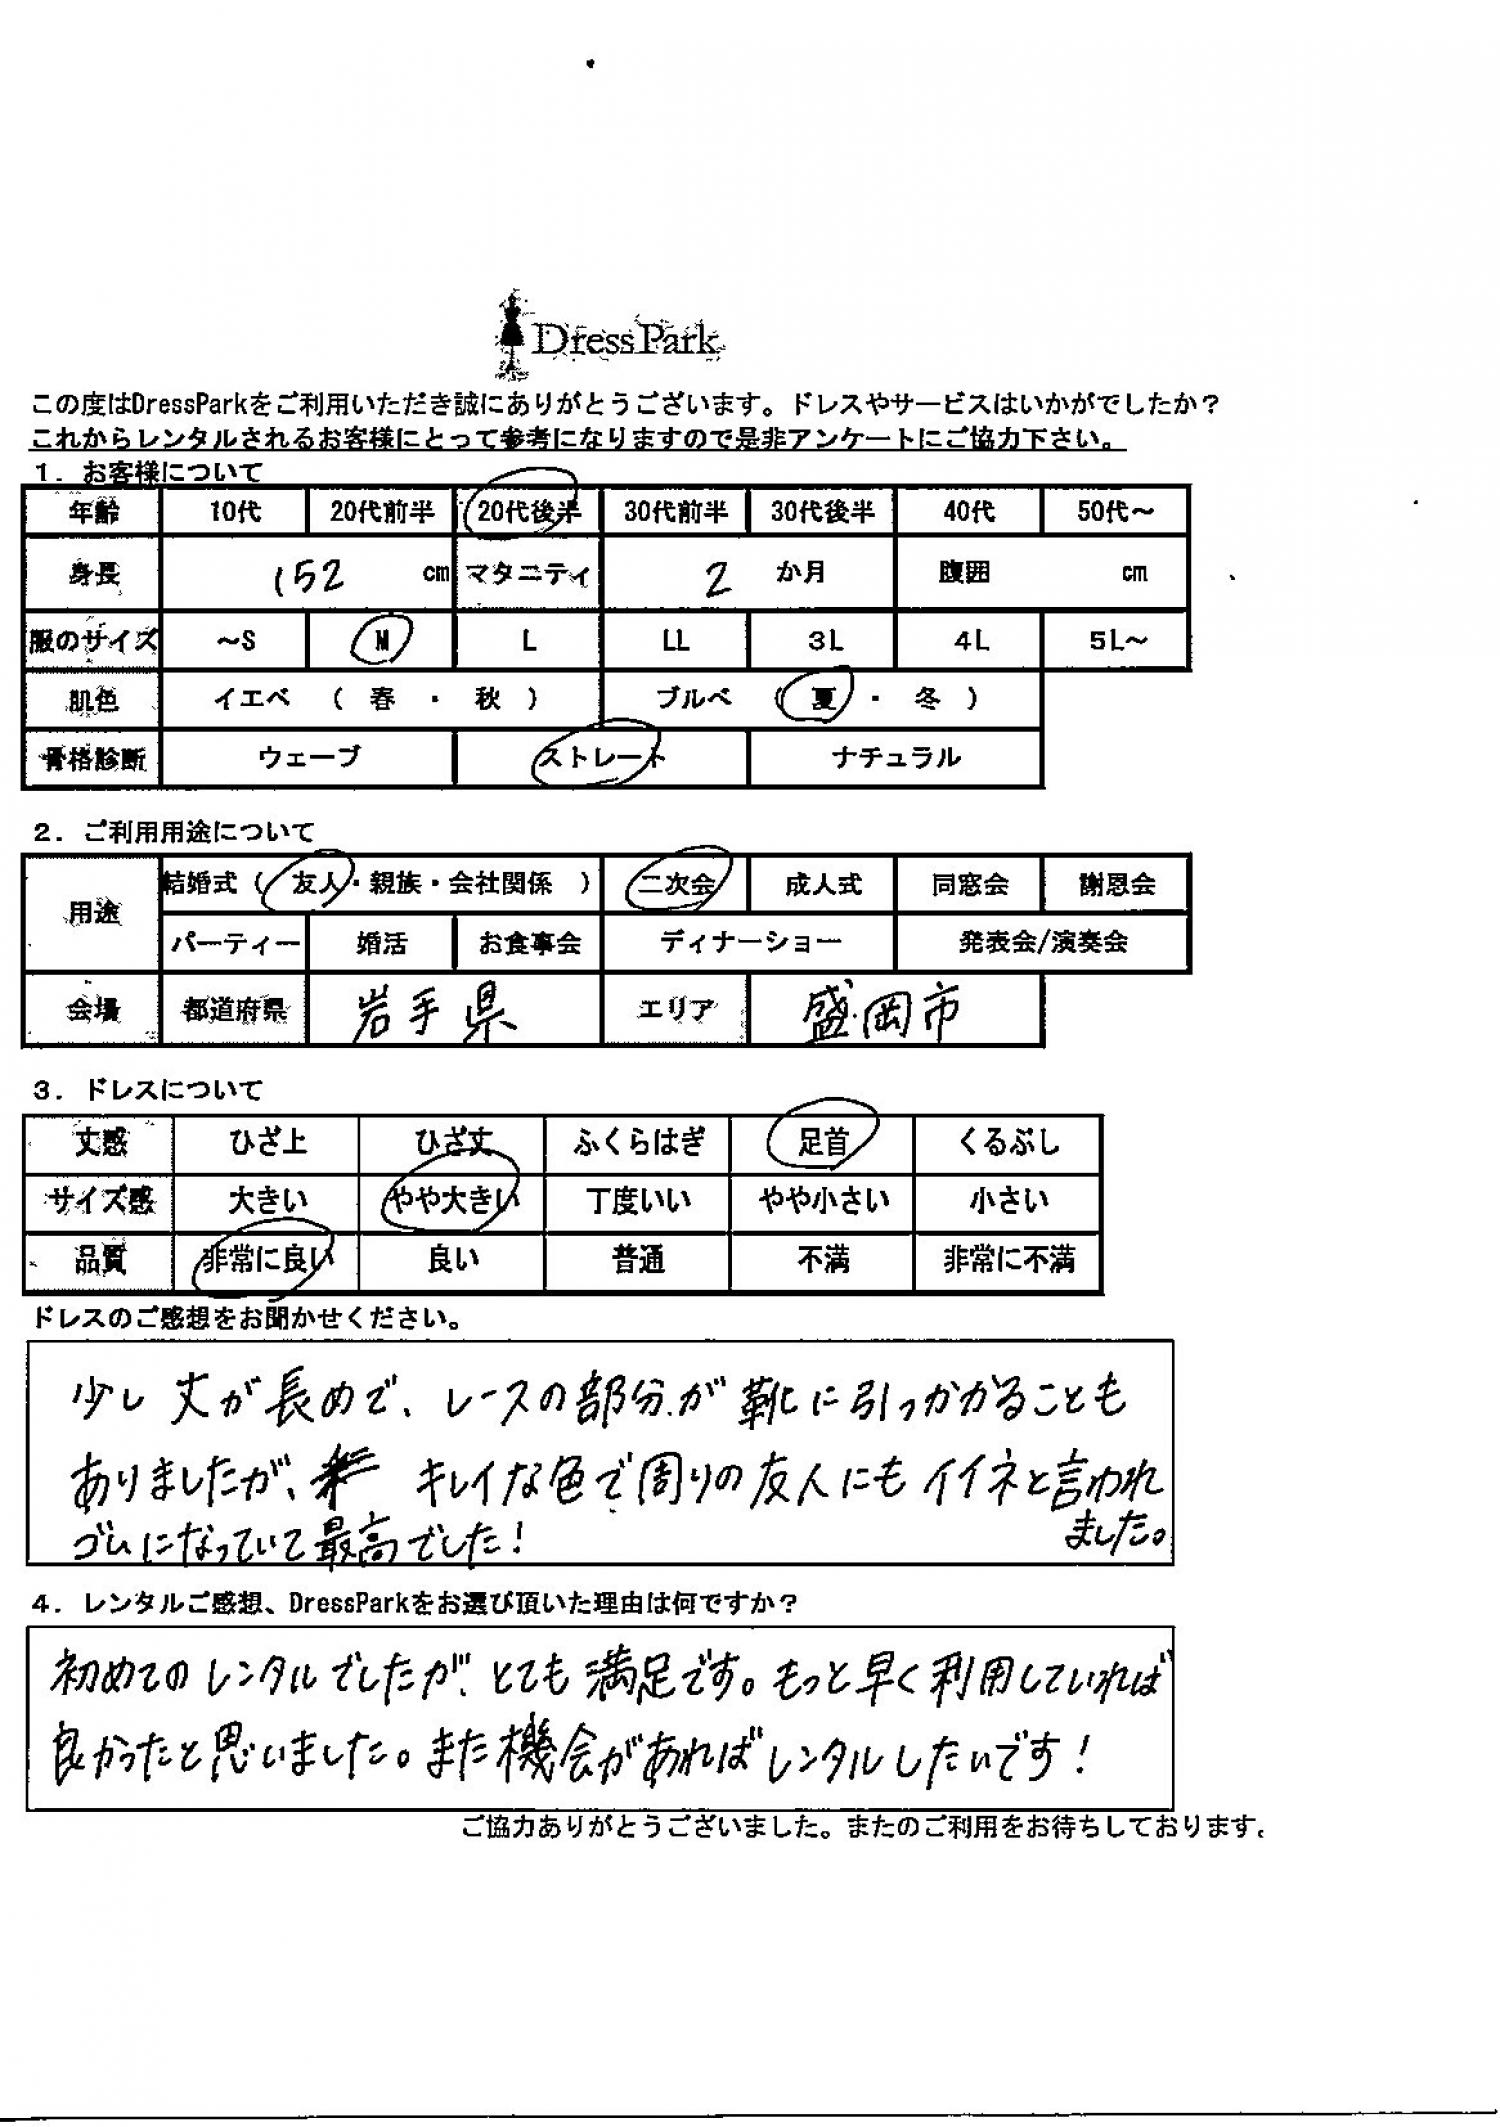 DressPark
この度はDressParkをご利用いただき誠にありがとうございます。ドレスやサービスはいかがでしたか？
これからレンタルされるお客様にとって参考になりますので是非アンケートにご協力下さい。
１．お客様について
年齢 10代 20代前半 20代後半 30代前半 30代後半 40代 50代～
身長 152 cm マタニティ 2 か月 腹囲 cm
服のサイズ ～S M L LL ３L ４L ５L～
肌色 イエベ （ 春 ・ 秋 ） ブルベ （ 夏 ・ 冬 ）
骨格診断 ウェーブ ストレート ナチュラル
２．ご利用用途について
用途 結婚式（ 友人・親族・会社関係 ） 二次会 成人式 同窓会 謝恩会
パーティー 婚活 お食事会 ディナーショー 発表会/演奏会
会場 都道府県 岩手県 エリア 盛岡市
３．ドレスについて
丈感 ひざ上 ひざ丈 ふくらはぎ 足首 くるぶし
サイズ感 大きい やや大きい 丁度いい やや小さい 小さい
品質 非常に良い 良い 普通 不満 非常に不満
ドレスのご感想をお聞かせください。
少し丈が長めで、レースの部分が靴に引っかかることも
ありましたが、キレイな色で周りの友人にもイイネと言われ
ました。
ゴムになっていて最高でした！
４．レンタルご感想、DressParkをお選び頂いた理由は何ですか？
初めてのレンタルでしたが、とても満足です。もっと早く利用していれば
良かったと思いました。また機会があればレンタルしたいです！
ご協力ありがとうございました。またのご利用をお待ちしております。